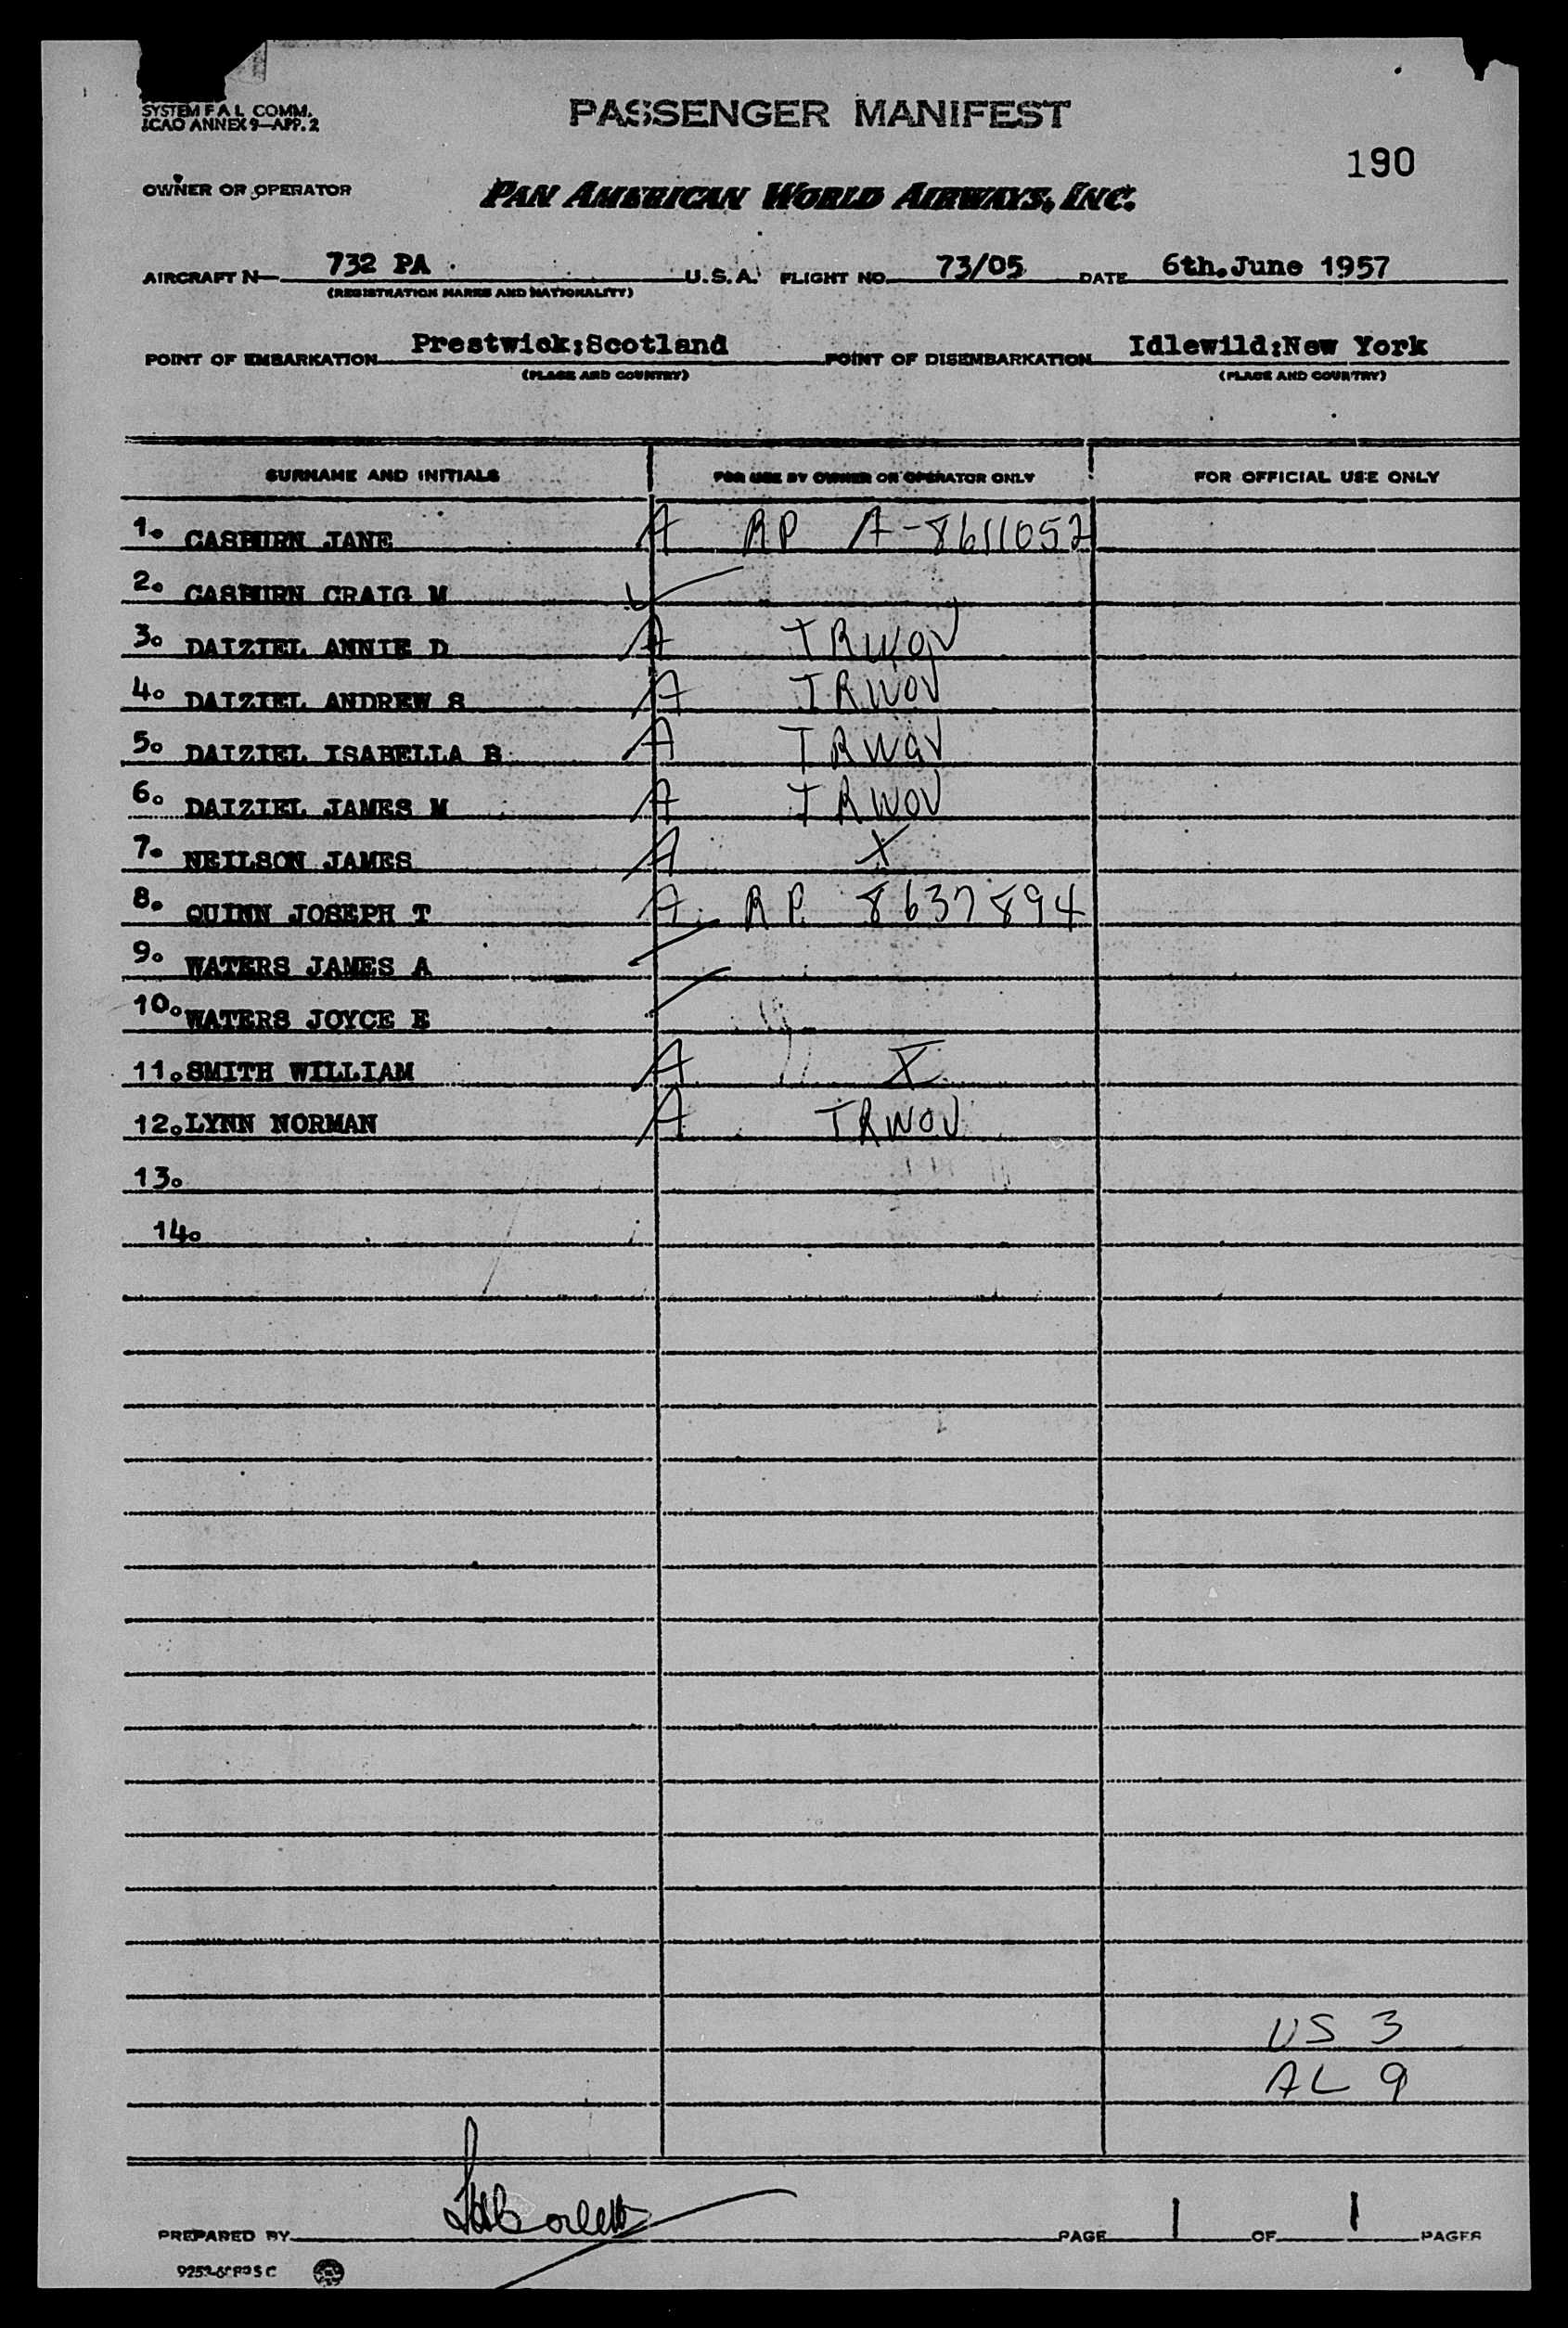 SYSTEM F A L COMM.
ICAO ANNEX 9—APP. 2
PASSENGER MANIFEST
190
OWNER OR OPERATOR PAN AMERICAN WORLD AIRWAYS, INC.
AIRCRAFT N— 732 PA U.S.A. FLIGHT NO. 73/05 DATE 6th.June 1957
(REGISTRATION MARKS AND NATIONALITY)
POINT OF EMBARKATION Prestwick;Scotland POINT OF DISEMBARKATION Idlewild;New York
(PLACE AND COUNTRY) (PLACE AND COUNTRY)
SURNAME AND INITIALS FOR USE BY OWNER OR OPERATOR ONLY FOR OFFICIAL USE ONLY
1. CASBURN JANE A RP A-8611052
2. CASBURN CRAIG M ✓
3. DALZIEL ANNIE D A TRWOV
4. DALZIEL ANDREW S A TRWOV
5. DALZIEL ISABELLA B A TRWOV
6. DALZIEL JAMES M A TRWOV
7. NEILSON JAMES A X
8. QUINN JOSEPH T A RP 8637894
9. WATERS JAMES A ✓
10. WATERS JOYCE E ✓
11. SMITH WILLIAM A X
12. LYNN NORMAN A TRWOV
13.
14.
US 3
AL 9
PREPARED BY PAGE 1 OF 1 PAGES